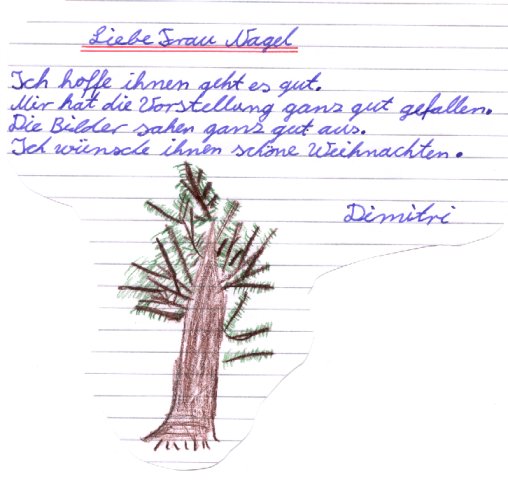 Liebe Frau Nagel
Ich hoffe ihnen geht es gut.
Mir hat die Vorstellung ganz gut gefallen.
Die Bilder sahen ganz gut aus.
Ich wünsche ihnen schöne Weihnachten.
Dimitri